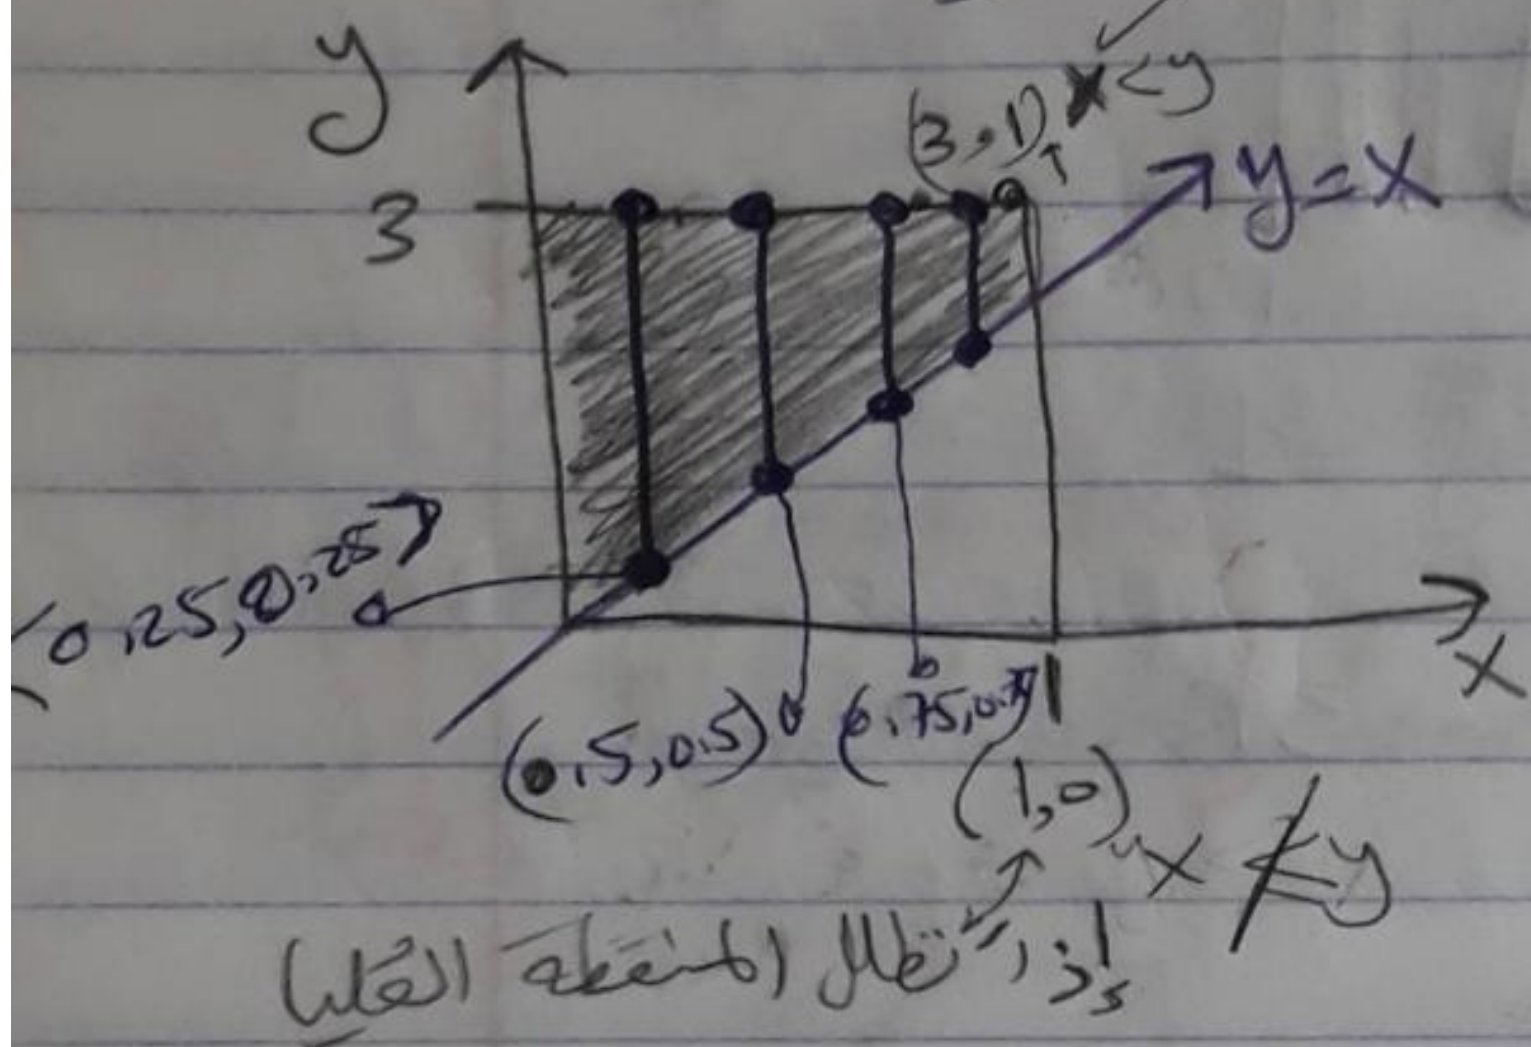 y
(3,1), x<y
3
y=x
(0.25,0.25)
x
(0.5,0.5)
(0.75,0.75)
1
(1,0), x ≰ y
إذن تظلل المنطقة العليا